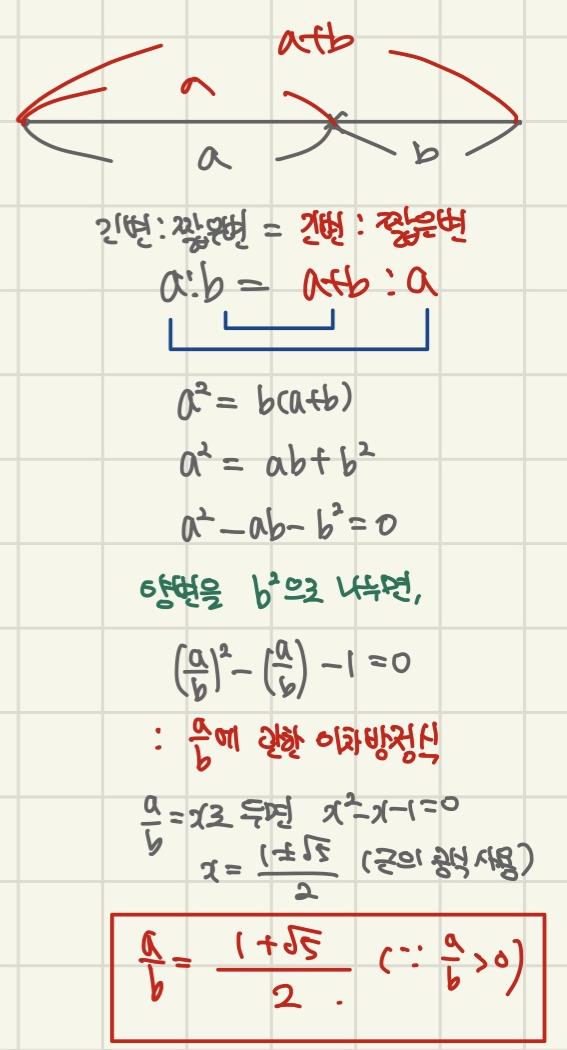 a+b
a
a b
긴변 : 짧은변 = 긴변 : 짧은변
a : b = a+b : a
a² = b(a+b)
a² = ab + b²
a² - ab - b² = 0
양변을 b²으로 나누면,
(a/b)² - (a/b) - 1 = 0
: a/b에 관한 이차방정식
a/b = x로 두면 x² - x - 1 = 0
x = (1±√5)/2 (근의 공식 사용)
a/b = (1+√5)/2 . (∵ a/b > 0)